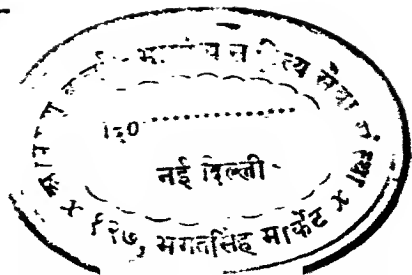 भारतीय साहित्य सेवा संस्था
दि०
नई दिल्ली
× १२७, भगतसिंह मार्केट ×